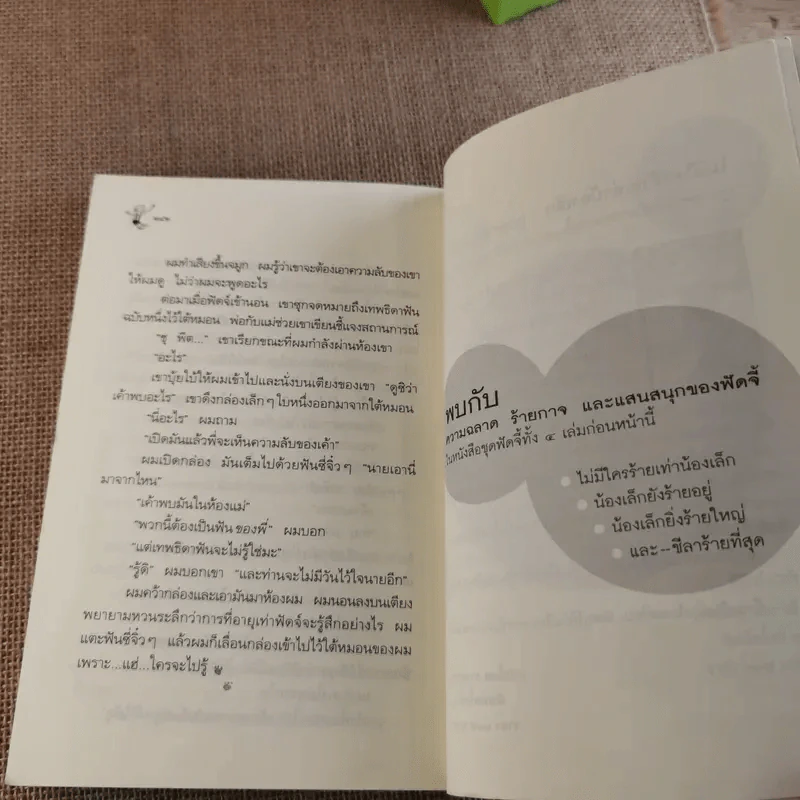 ผมทำเสียงขึ้นจมูก ผมรู้ว่าเขาจะต้องเอาความลับของเขา
ให้ผมดู ไม่ว่าผมจะพูดอะไร
ต่อมาเมื่อฟัดจ์เข้านอน เขาซุกจดหมายถึงเทพธิดาฟัน
ฉบับหนึ่งไว้ใต้หมอน พ่อกับแม่ช่วยเขาเขียนชี้แจงสถานการณ์
"ซู พีต..." เขาเรียกขณะที่ผมกำลังผ่านห้องเขา
"อะไร"
เขาบุ้ยใบ้ให้ผมเข้าไปและนั่งบนเตียงของเขา "ดูซิว่า
เค้าพบอะไร" เขาดึงกล่องเล็กๆ ใบหนึ่งออกมาจากใต้หมอน
"นี่อะไร" ผมถาม
"เปิดมันแล้วพี่จะเห็นความลับของเค้า"
ผมเปิดกล่อง มันเต็มไปด้วยฟันซี่จิ๋วๆ "นายเอานี่
มาจากไหน"
"เค้าพบมันในห้องแม่"
"พวกนี้ต้องเป็นฟันของพี่" ผมบอก
"แต่เทพธิดาฟันจะไม่รู้ใช่มะ"
"รู้ดิ" ผมบอกเขา "และท่านจะไม่มีวันไว้ใจนายอีก"
ผมคว้ากล่องและเอามันมาห้องผม ผมนอนลงบนเตียง
พยายามหวนระลึกว่าการที่อายุเท่าฟัดจ์จะรู้สึกอย่างไร ผม
แตะฟันซี่จิ๋วๆ แล้วผมก็เลื่อนกล่องเข้าไปไว้ใต้หมอนของผม
เพราะ...แฮ่...ใครจะไปรู้
พบกับ
ความฉลาด ร้ายกาจ และแสนสนุกของฟัดจี้
ในหนังสือชุดฟัดจี้ทั้ง ๔ เล่มก่อนหน้านี้
ไม่มีใครร้ายเท่าน้องเล็ก
น้องเล็กยังร้ายอยู่
น้องเล็กยิ่งร้ายใหญ่
และ--ชีลาร้ายที่สุด